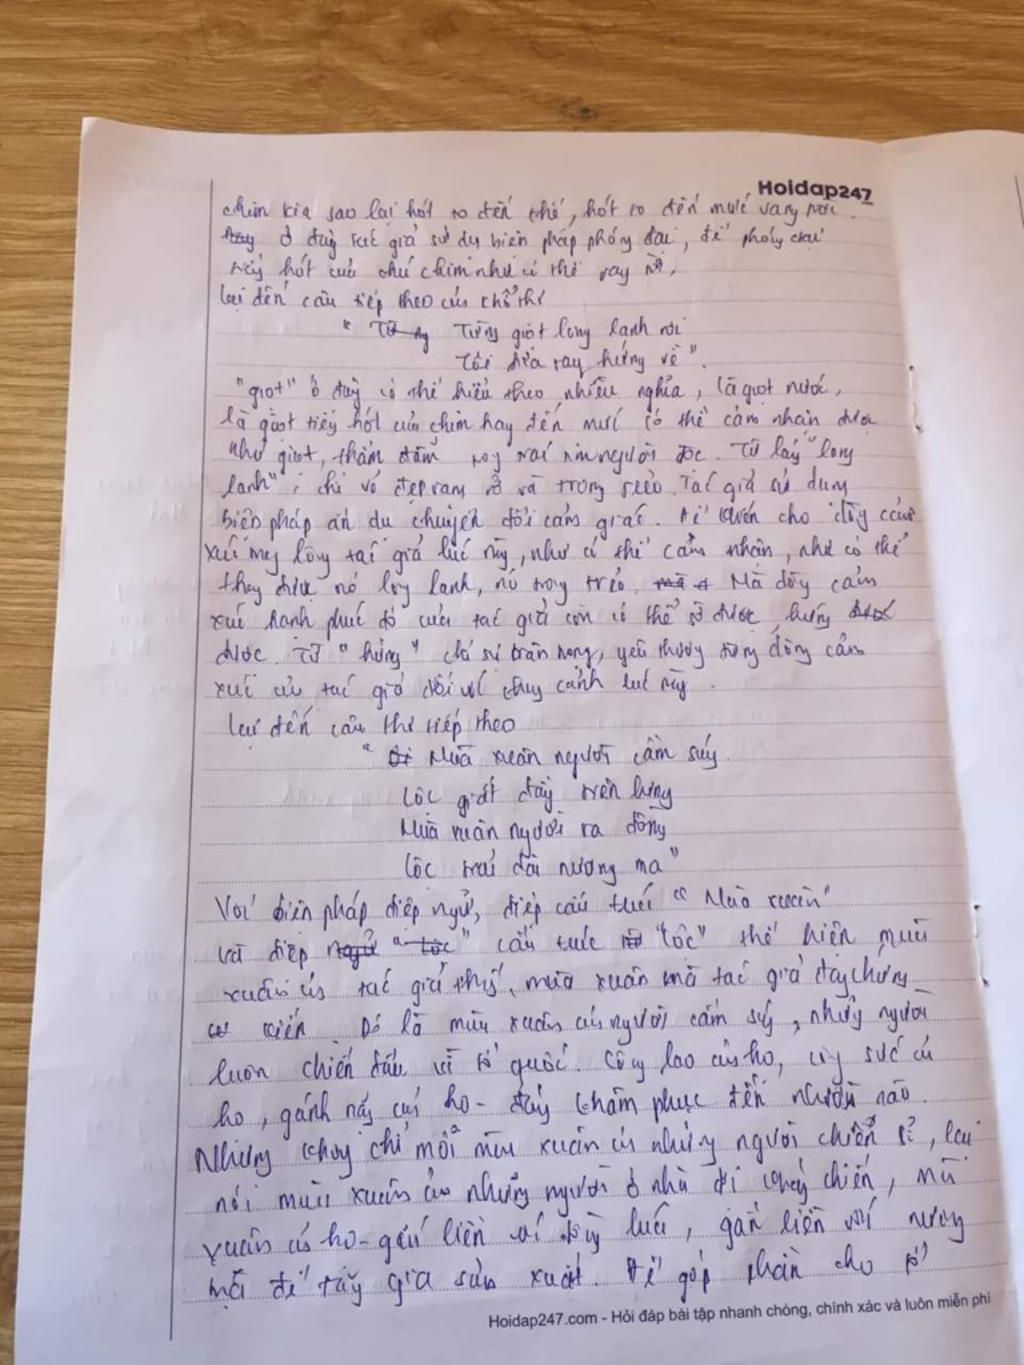 Hoidap247
chim kia sao lại hót to đến thế, hót to đến mức vang trời.
ở đây tác giả sử dụng biện pháp phóng đại, để phóng đại
tiếng hót của chú chim như có thể
lại đến câu tiếp theo của khổ thơ
" Từng giọt long lanh rơi
Tôi đưa tay hứng về ".
"giọt" ở đây có thể hiểu theo nhiều nghĩa, là giọt nước,
là giọt tiếng hót của chim hay đến mức có thể cảm nhận được
như giọt, thấm đẫm người đọc. Từ láy "long
lanh" chỉ vẻ đẹp và trong trẻo. Tác giả sử dụng
biện pháp ẩn dụ chuyển đổi cảm giác. để cho dòng cảm
xúc trong lòng tác giả lúc này, như có thể cảm nhận, như có thể
thấy được nó long lanh, nó trong trẻo. Mà dòng cảm
xúc hạnh phúc đó của tác giả còn có thể được hứng
được. Từ " hứng " chỉ sự trân trọng, yêu thương từng dòng cảm
xúc của tác giả đối với cảnh lúc này.
lại đến câu thơ tiếp theo
" Mùa xuân người cầm súng
Lộc giắt đầy trên lưng
Mùa xuân người ra đồng
Lộc trải dài nương mạ "
Với biện pháp điệp ngữ, điệp cấu trúc " Mùa xuân"
và điệp cấu trúc "lộc" thể hiện mùa
xuân của tác giả thấy, mùa xuân mà tác giả đang chứng
kiến Đó là mùa xuân của người cầm súng, những người
luôn chiến đấu vì tổ quốc. Công lao của họ, công sức của
họ, gánh nặng của họ - đáng khâm phục đến nhường nào.
Nhưng không chỉ mỗi mùa xuân của những người chiến sĩ, lại
nói mùa xuân của những người ở nhà đi kháng chiến, mùa
xuân của họ - gắn liền với đồng lúa, gắn liền với nương
mạ để tăng gia sản xuất. Để góp phần cho tổ
Hoidap247.com - Hỏi đáp bài tập nhanh chóng, chính xác và luôn miễn phí